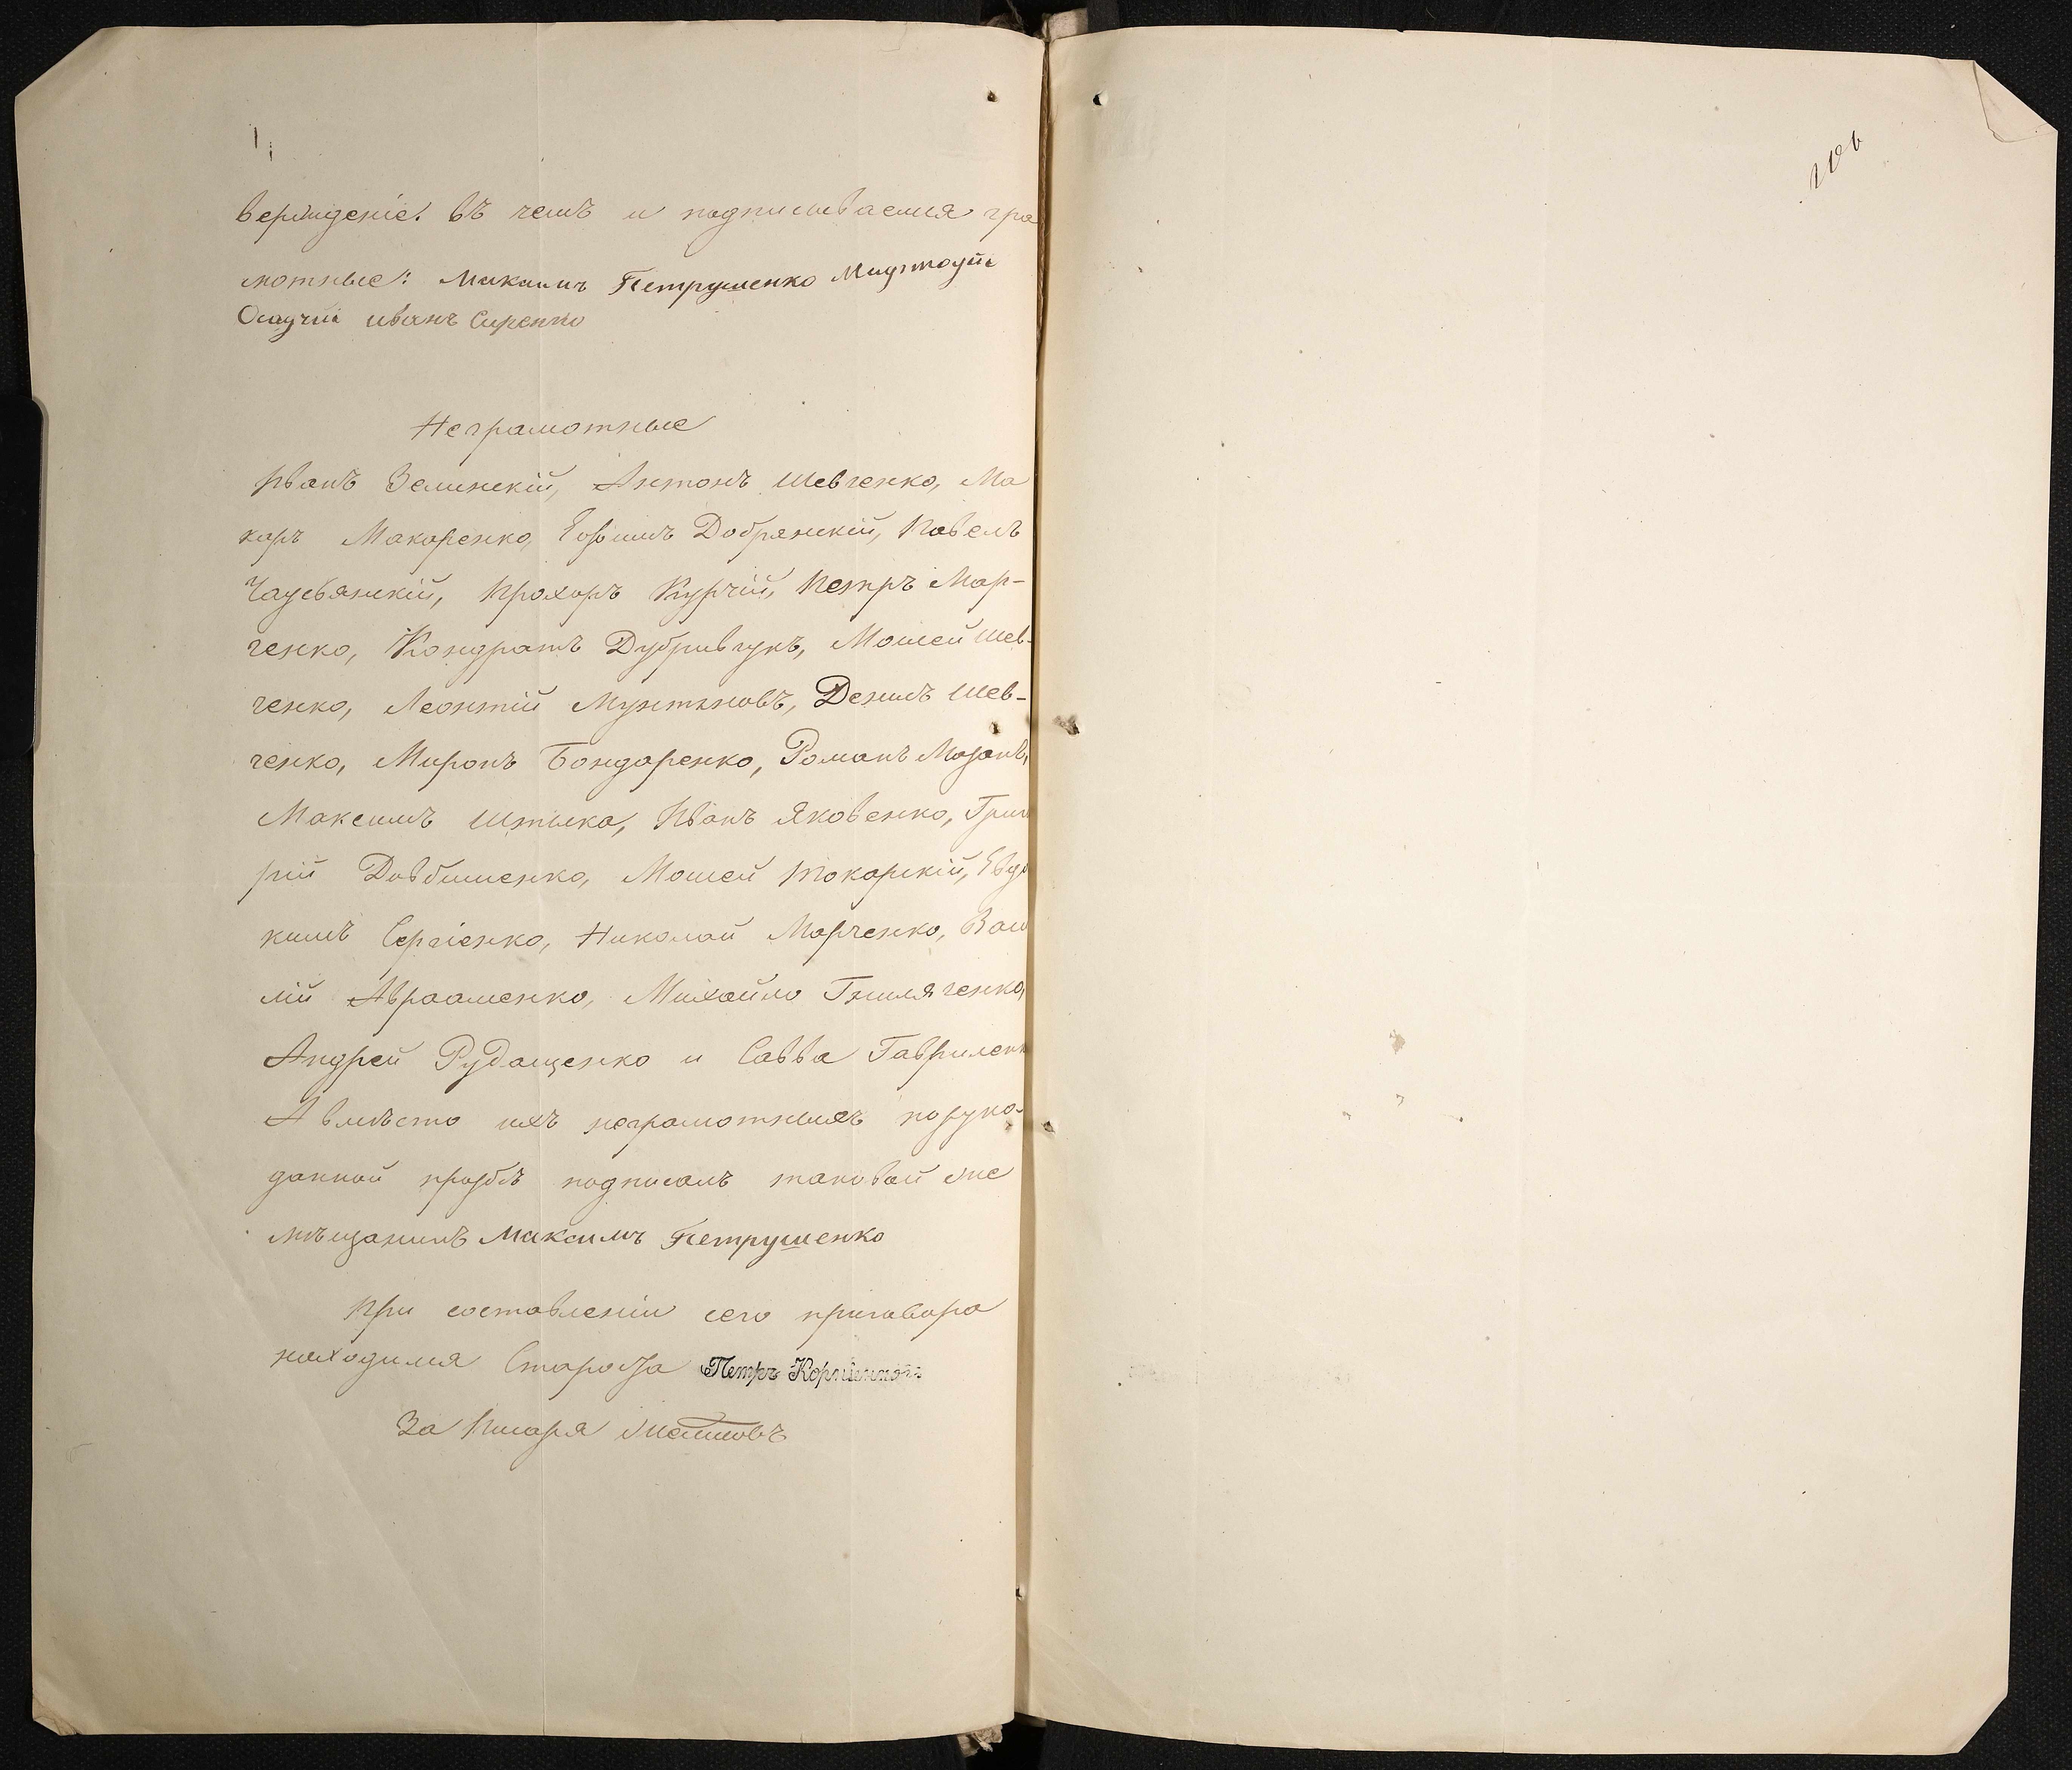 вержденіе. въ чемъ и подписываемся гра
мотные: Максимъ Петрушенко
Осадчий иванъ Сиренко
Неграмотные
Иванъ Зелинскій, Антонъ Шевченко, Ма
каръ Макаренко, Ефимъ Добрянскій, Павелъ
Прохоръ Курчій, Петръ Мар-
ченко, Кондратъ Дубривчукъ, Мосей Шев-
ченко, Леонтій Мунтяновъ, Денисъ Шев-
ченко, Миронъ Бондаренко, Романъ Мазанъ,
Максимъ Штыка, Иванъ Яковенко, Григо
рій Довбышенко, Мосей Токарскій, Евдо
кимъ Сергіенко, Николай Марченко, Васи
лій Авраменко, Михайло Гниляченко,
Андрей Рудащенко и Савва Гавриленк
А вмѣсто ихъ неграмотныхъ по рука-
данной прозбѣ подписалъ таковой же
мѣщанинъ Максимъ Петрушенко
При составленіи сего приговора
находился Староста Петръ Корніенко
За Писаря